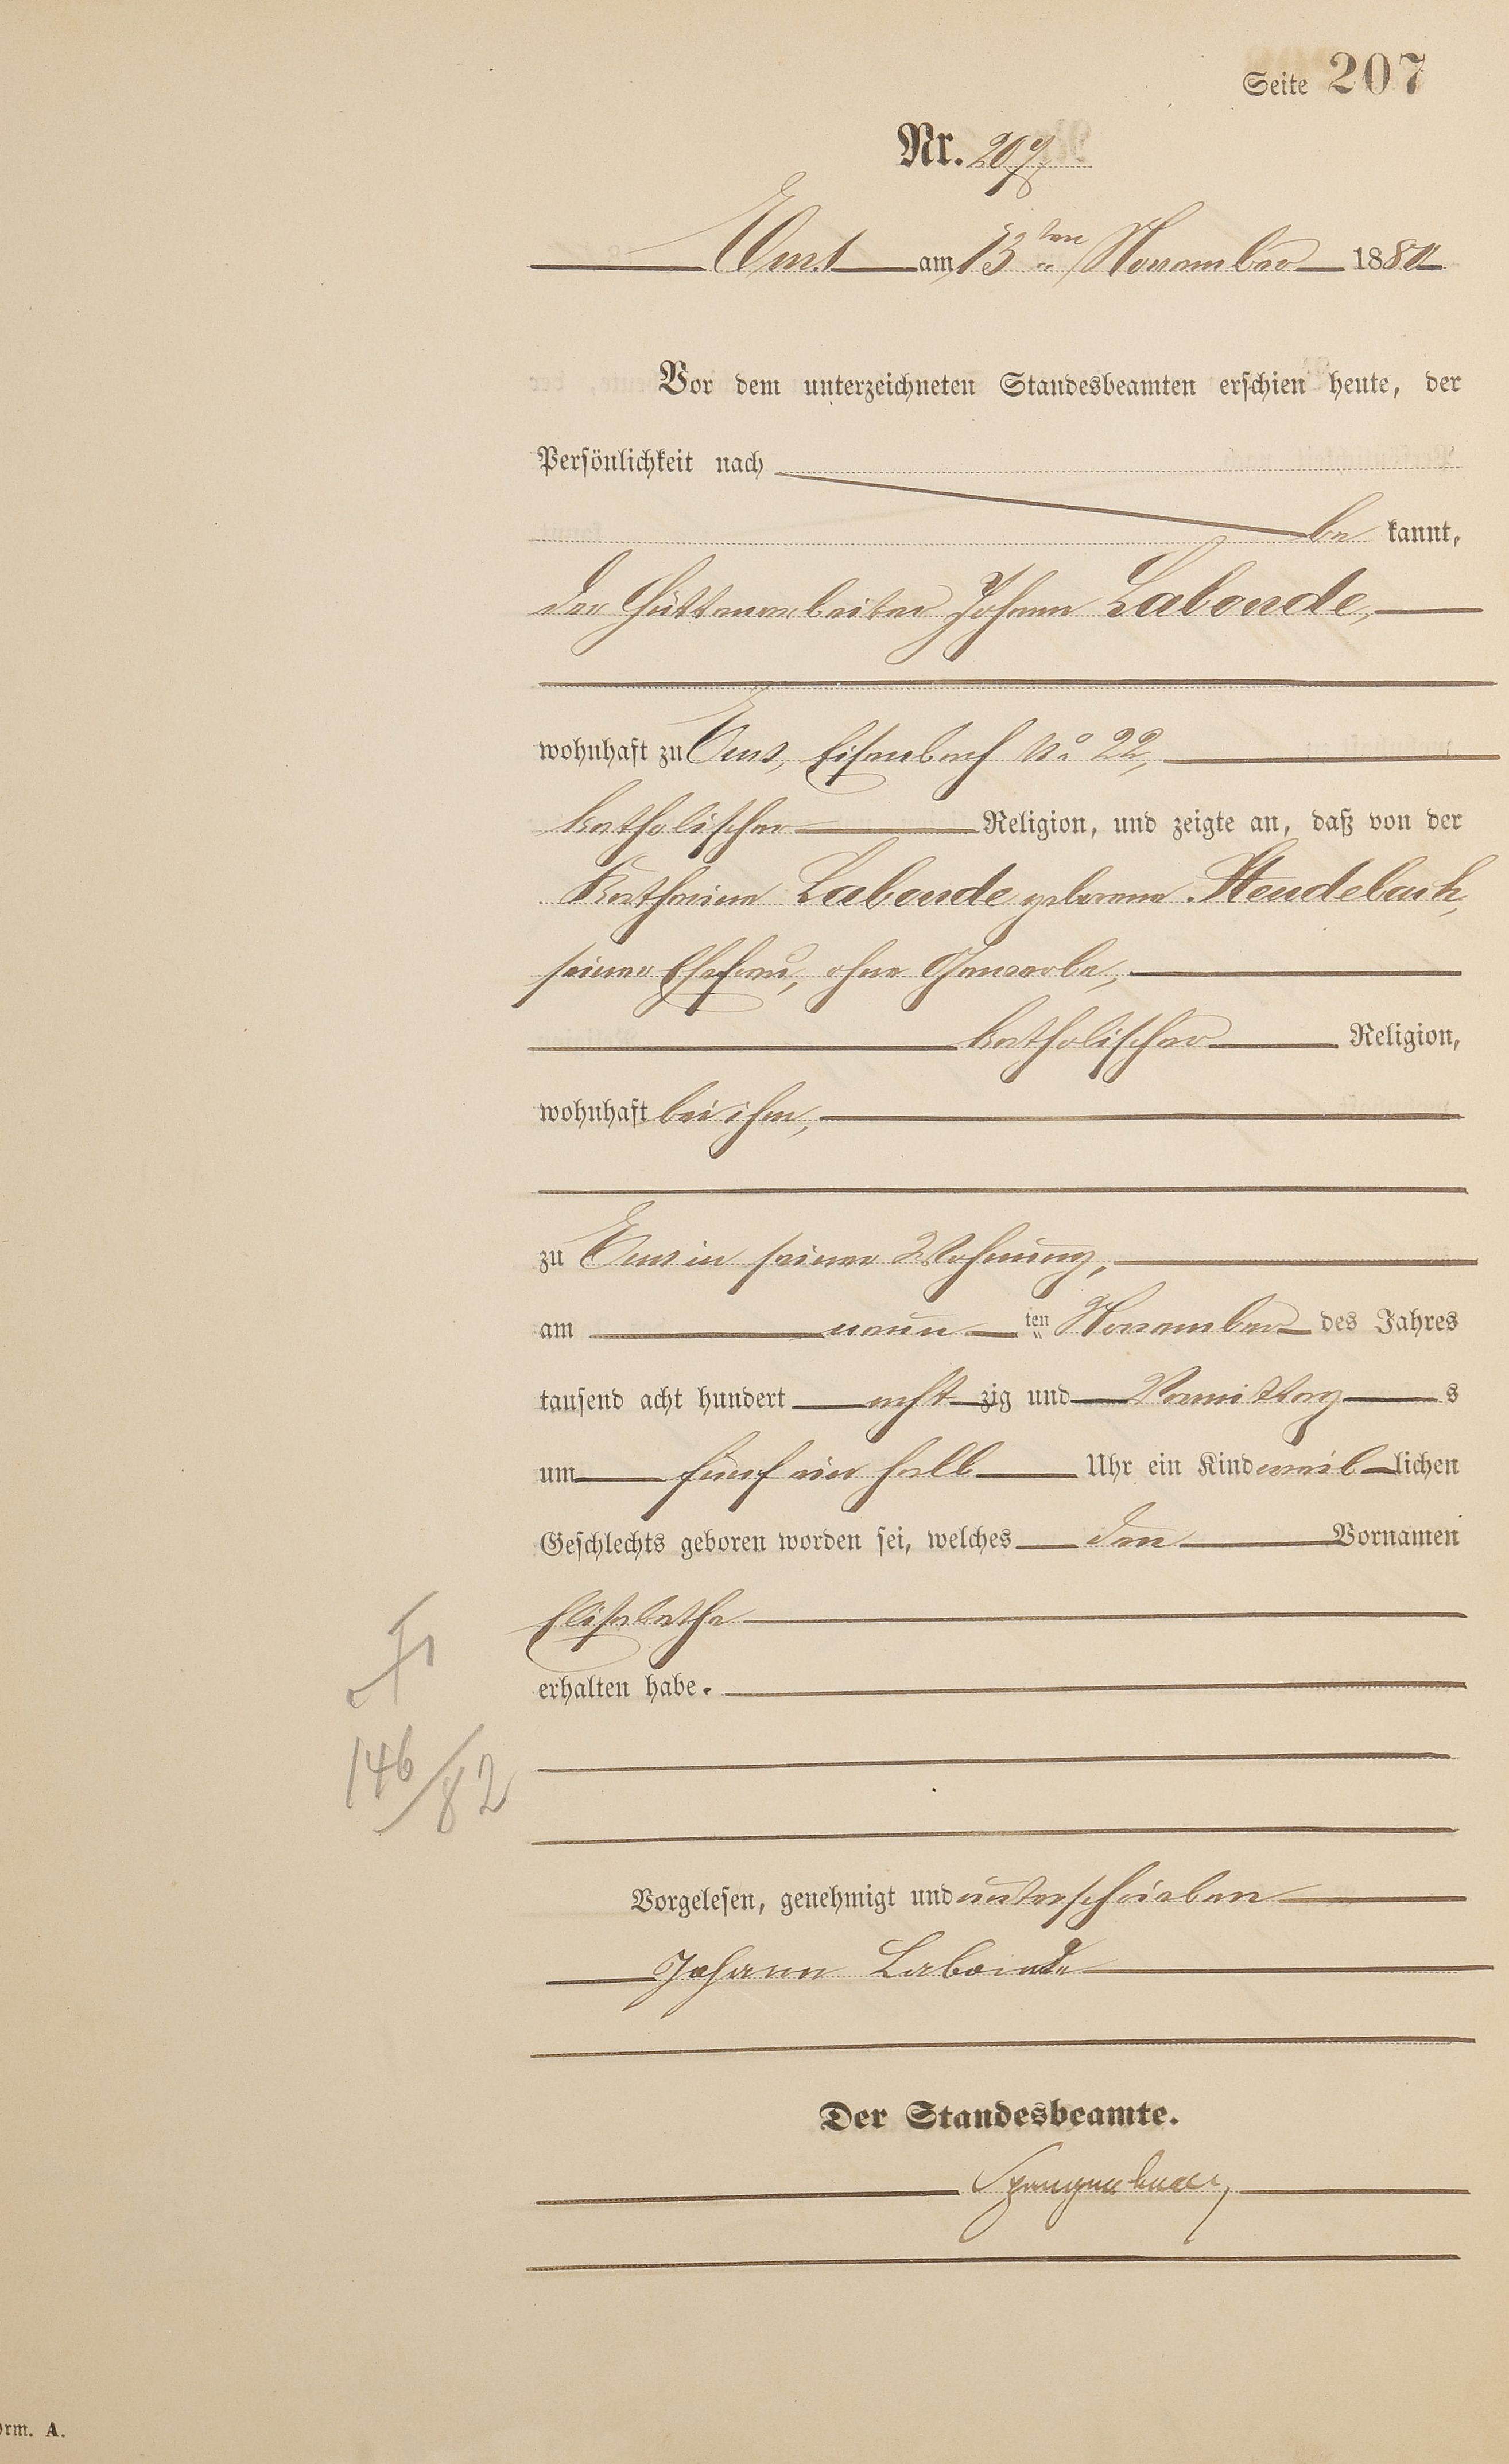 Seite 207
Nr. 207.
Ems am 13ten November 1880
Vor dem unterzeichneten Standesbeamten erschien heute, der
Persönlichkeit nach
be kannt,
der Hüttenarbeiter Johann Labonde,
wohnhaft zu Ems, Eisenbach No 22,
katholischer Religion, und zeigte an, daß von der
Katharina Labonde geborene Stendebach,
seiner Ehefrau, ohne Gewerbe,
katholischer Religion,
wohnhaft bei ihm,
zu Ems in seiner Wohnung,
am neun ten November des Jahres
tausend acht hundert acht zig und Vormittag s
um fünf ein halb Uhr ein Kind weib lichen
Geschlechts geboren worden sei, welches den Vornamen
Elisabetha
erhalten habe.
†
146/82
Vorgelesen, genehmigt und unterschrieben
Johann Labonde
Der Standesbeamte.
orm. A.